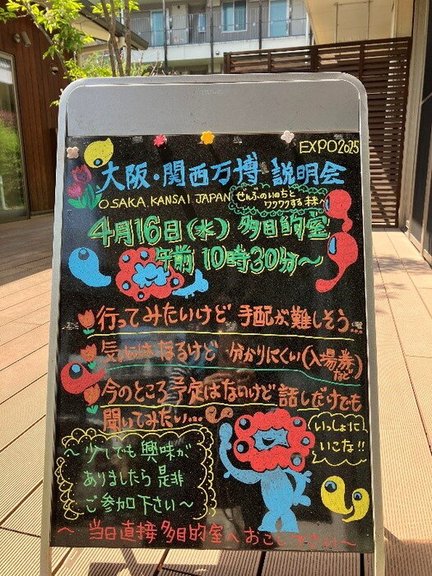 EXPO2025
大阪・関西万博 説明会
OSAKA, KANSAI, JAPAN
ぜんぶのいのちと
ワクワクする未来へ
4月16日(水) 多目的室
午前 10時30分～
行ってみたいけど 手配が難しそう
気になるけど 分かりにくい(入場券など)
今のところ予定はないけど 話しだけでも
聞いてみたい…
いっしょに
いこな!!
～少しでも 興味が
ありましたら 是非
ご参加下さい～
～ 当日直接多目的室へおこし